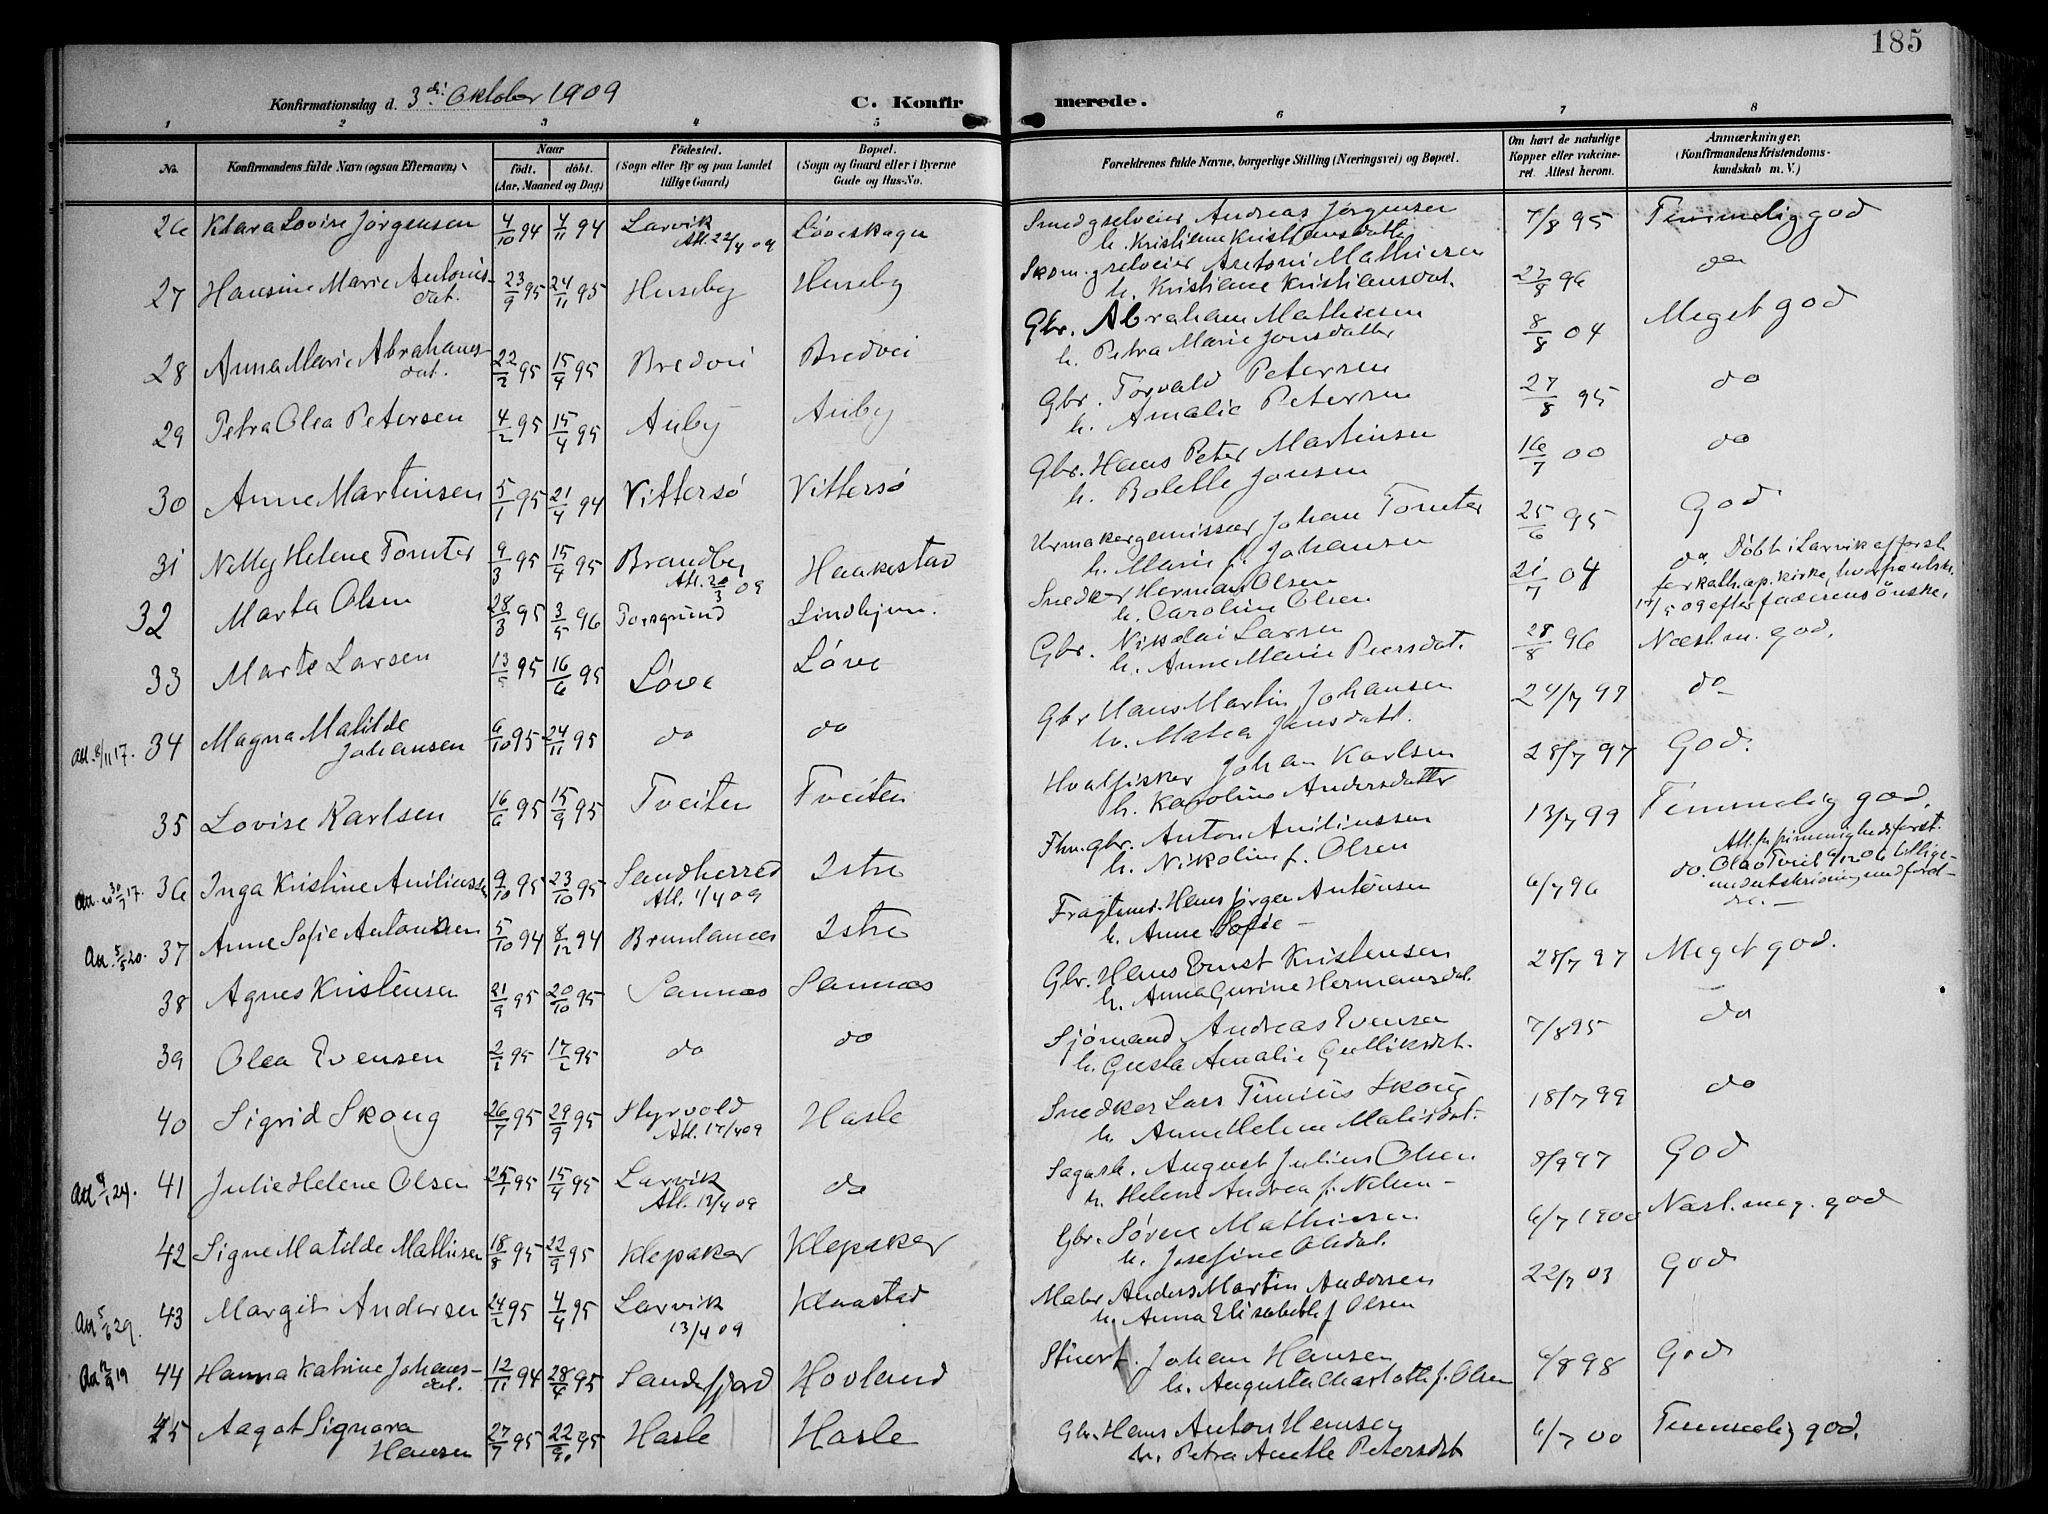 185
Konfirmationsdag d. 3di Oktober 1909
C. Konfirmerede.
1 2 3 4 5 6 7 8
No. Konfirmandens fulde Navn (ogsaa Efternavn) Naar født. døbt. (Aar, Maaned og Dag) Fødested. (Sogn eller By og paa Landet tillige Gaard) Bopæl. (Sogn og Gaard eller i Byerne Gade og Hus-No. Forældrenes fulde Navne, borgerlige Stilling (Næringsvei) og Bopæl. Om havt de naturlige Kopper eller vakcineret. Attest herom. Anmærkninger. (Konfirmandens Kristendomskundskab m. V.)
26 Klara Lovise Jørgensen 4/10 94 4/11 94 Larvik Løveskogen Smed gselveier Andreas Jørgensen 7/8 95 Temmelig god
Att. 22/4 09 h. Kristiane Kristiansdatter
27 Hansine Marie Antonis- 23/9 95 24/11 95 Huseby Huseby Skom. gselveier Antoni Mathiesen 27/8 96 do
dat. h. Kristiane Kristiansdat.
28 Anna Marie Abrahams- 22/2 95 15/4 95 Bredvei Bredvei Gbr. Abraham Mathisen 8/8 04 Meget god
dat. h. Petra Marie Jonsdatter
29 Petra Olea Petersen 4/2 95 15/4 95 Auby Auby Gbr. Torvald Petersen 27/8 95 do
h. Amalie Petersen
30 Anne Martinsen 5/1 95 21/4 94 Vittersø Vittersø Gbr. Hans Peter Martinsen 16/7 00 do
h. Bolette Jonsen
31 Nelly Helene Tomter 9/3 95 15/4 95 Brandby Haakestad Urmakergemissær Johan Tomter 25/6 95 God
Att. 20/3 09 h. Marie f. Johansen
32 Marta Olsen 28/3 95 3/5 96 Porsgrund Lindhjem. Snedker Herman Olsen 21/7 04 do Døbt i Larvik af forst.
h. Caroline Olsen for kath. ap. kirke, hvorpaa utsk.
17/5 09 efter faderens ønske.
33 Marte Larsen 13/5 95 16/6 95 Løve Løve Gbr. Nikolai Larsen 28/8 96 Næst m. god.
h. Anne Marie Peersdat.
Att. 8/11 17. 34 Magna Matilde 6/10 95 24/11 95 do do Gbr Hans Martin Johansen 24/7 97 do
Johansen h. Matea Jansdatt.
35 Lovise Karlsen 16/6 95 15/9 95 Tveiten Tveiten Hvalfisker Johan Karlsen 28/7 97 God.
h. Karoline Andersdatter
Att. 30/7 17. 36 Inga Kristine Aniliussen 9/10 95 23/10 95 Sandherred Istre Fhv. gbr. Anton Aniliussen 13/7 99 Temmelig god.
Att. 1/4 09 h. Nikoline f. Olsen
Att. 5/5 20. 37 Anne Sofie Antonsen 5/10 94 8/12 94 Brunlanæs Istre Fragtemd. Hans Jørgen Antonsen 6/7 96 do.
h. Anne Sofie –
38 Agnes Kristensen 21/9 95 20/10 95 Sannæs Sannæs Gbr. Hans Ernst Kristensen 28/7 97 Meget god.
h. Anna Gurine Hermansdat.
39 Olea Evensen 2/1 95 17/2 95 do do Sjømand Andreas Evensen 7/8 95 do
h. Gusta Amalie Gulliksdat.
40 Sigrid Skoug 26/7 95 29/9 95 Styrvold Hasle Snedker Lars Tinius Skoug 18/7 99 do
Att. 17/4 09 h. Anne Helene Matisdat.
Att 9/1 24. 41 Julie Helene Olsen 25/1 95 15/4 95 Larvik do Sagarb. August Julius Olsen 8/9 97 God
Att. 13/4 09 h. Helene Andrea f. Nilsen –
42 Signe Matilde Mathisen 18/8 95 22/9 95 Klepaker Klepaker Gbr. Søren Mathisen 6/7 1900 Næst. meg. god
h. Josefine Olsdat.
Att 5/6 29. 43 Margit Andersen 24/2 95 4/4 95 Larvik Klaastad Maler Anders Martin Andersen 22/7 03 God
13/4 09 h. Anna Elisabeth f Olsen
Att 12/9 19 44 Hanna Katrine Johans- 12/11 94 28/4 95 Sandefjord Hovland Stuert. Johan Hansen 6/8 98 God
dat. h. Augusta Charlotte f. Olsen
45 Aagot Signora 27/7 95 22/9 95 Hasle Hasle Gbr. Hans Anton Hansen 6/7 00 Temmelig god.
Hansen h. Petra Anette Petersdat